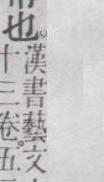 也。
漢書藝文
十三卷。五